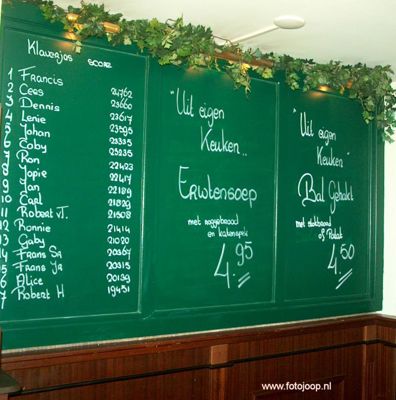 Klaverjas score
1 Francis 24762
2 Cees 23660
3 Dennis 23617
4 Lenie 23595
5 Johan 23335
6 Coby 23235
7 Ron 22423
8 Jopie 22417
9 Jan 22189
10 Carl 21829
11 Robert T. 21508
12 Ronnie 21414
13 Gaby 21020
14 Frans Sr 20367
15 Frans Jr 20315
16 Alice 20139
17 Robert H 19451
"Uit eigen
Keuken..
Erwtensoep
met roggebrood
en katenspek
4.95
"Uit eigen
Keuken"
Bal Gehakt
met stokbrood
of Patat
4.50
www.fotojoop.nl